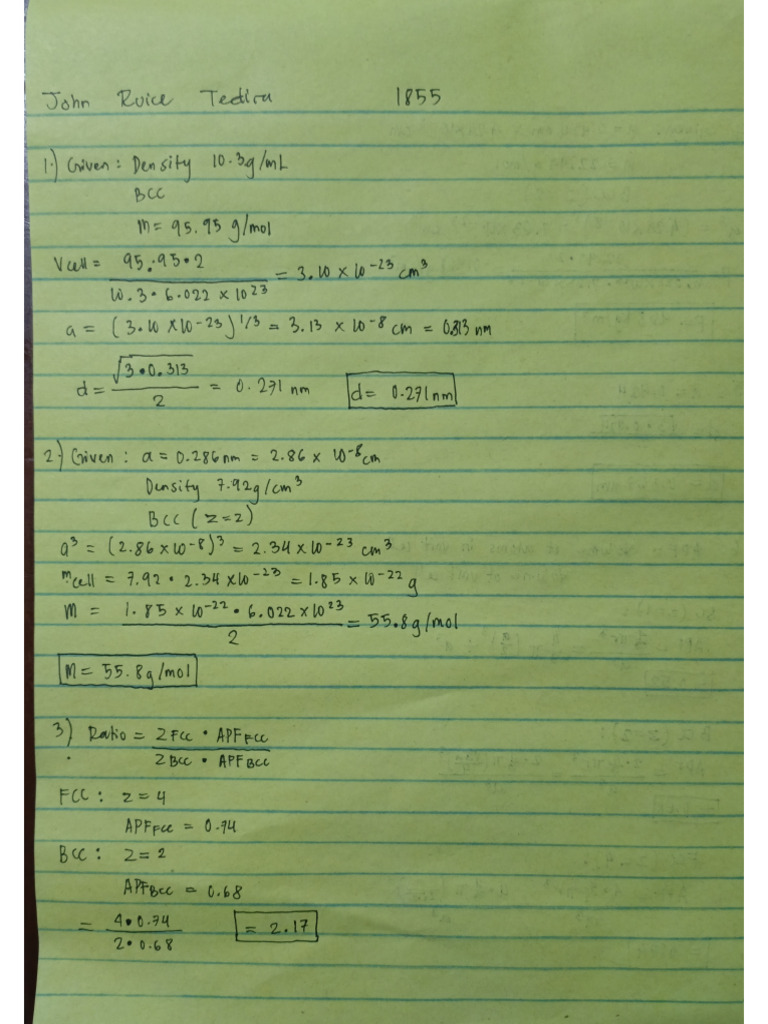 John Ruice Tedira 1855
1.) Given: Density 10.3g/mL
BCC
M= 95.95 g/mol
Vcell = 95.95•2 / 10.3•6.022 × 10^23 = 3.10 × 10^-23 cm^3
a = (3.10 × 10^-23)^1/3 = 3.13 × 10^-8 cm = 0.313 nm
d = √3•0.313 / 2 = 0.271 nm d= 0.271nm
2.) Given: a = 0.286nm = 2.86 × 10^-8 cm
Density 7.92g/cm^3
BCC (z=2)
a^3 = (2.86×10^-8)^3 = 2.34×10^-23 cm^3
mcell = 7.92 • 2.34×10^-23 = 1.85 × 10^-22 g
M = 1.85 × 10^-22 • 6.022 × 10^23 / 2 = 55.8g/mol
M= 55.8g/mol
3) Ratio = ZFCC • APFFCC / ZBCC • APFBCC
FCC: z=4
APFFCC = 0.74
BCC: Z=2
APFBCC = 0.68
= 4•0.74 / 2•0.68 = 2.17